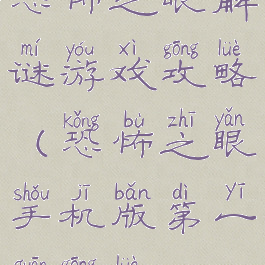 恐怖之眼解
mí yóu xì gōng lüè
谜游戏攻略
kǒng bù zhī yǎn
（恐怖之眼
shǒu jī bǎn dì yī
手机版第一
guān gōng lüè